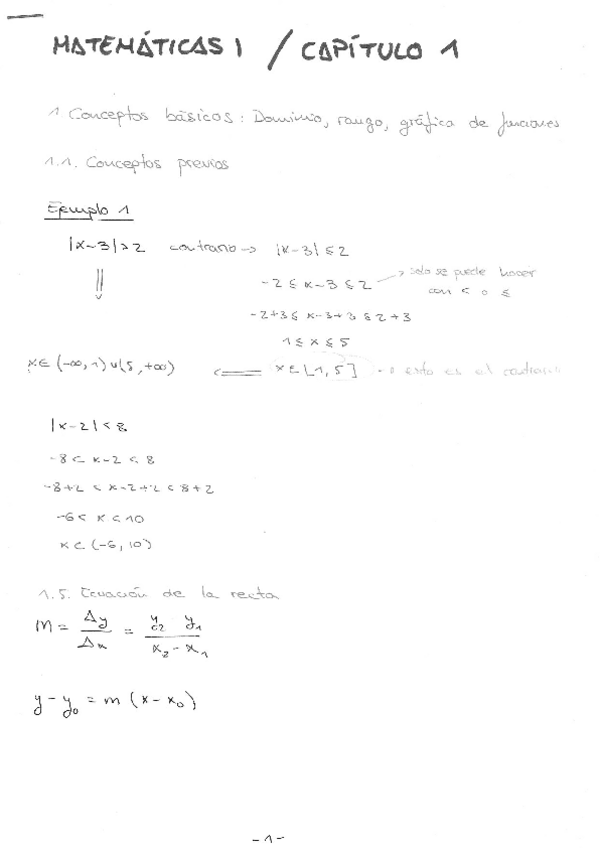 MATEMÁTICAS I / CAPÍTULO 1
1 Conceptos básicos: Dominio, rango, gráfica de funciones
1.1. Conceptos previos
Ejemplo 1
|x-3|>2 contrario → |x-3| ≤ 2
-2 ≤ x-3 ≤ 2 → solo se puede hacer
con < o ≤
-2+3 ≤ x-3+3 ≤ 2+3
1 ≤ x ≤ 5
x∈ (-∞, 1) ∪ (5, +∞) ⇐ x∈[1, 5] → esto es el contrario
|x-2| < 8
-8 < x-2 < 8
-8+2 < x-2+2 < 8+2
-6 < x < 10
x∈ (-6, 10)
1.5. Ecuación de la recta
m = Δy/Δx = y₂ y₁/x₂-x₁
y - y₀ = m (x - x₀)
-1-